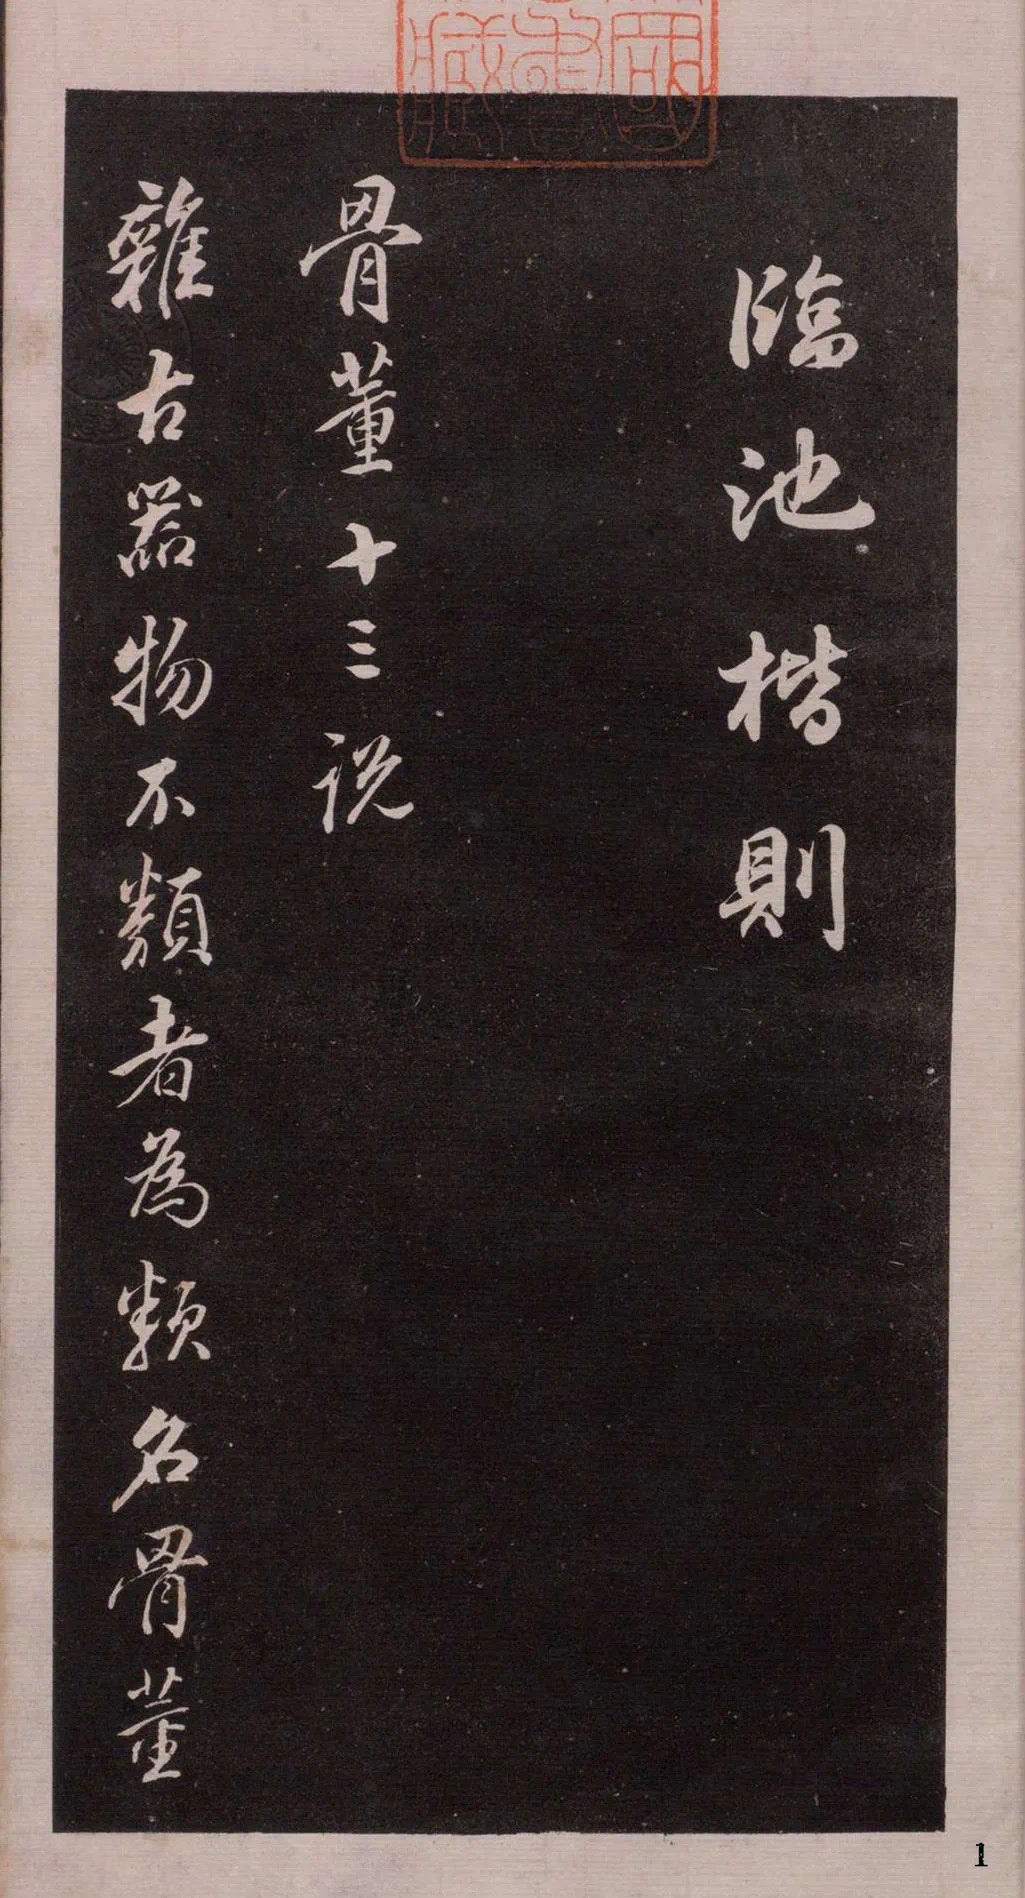 臨池楷則
骨董十三說
雜古器物不類者為類名骨董
1